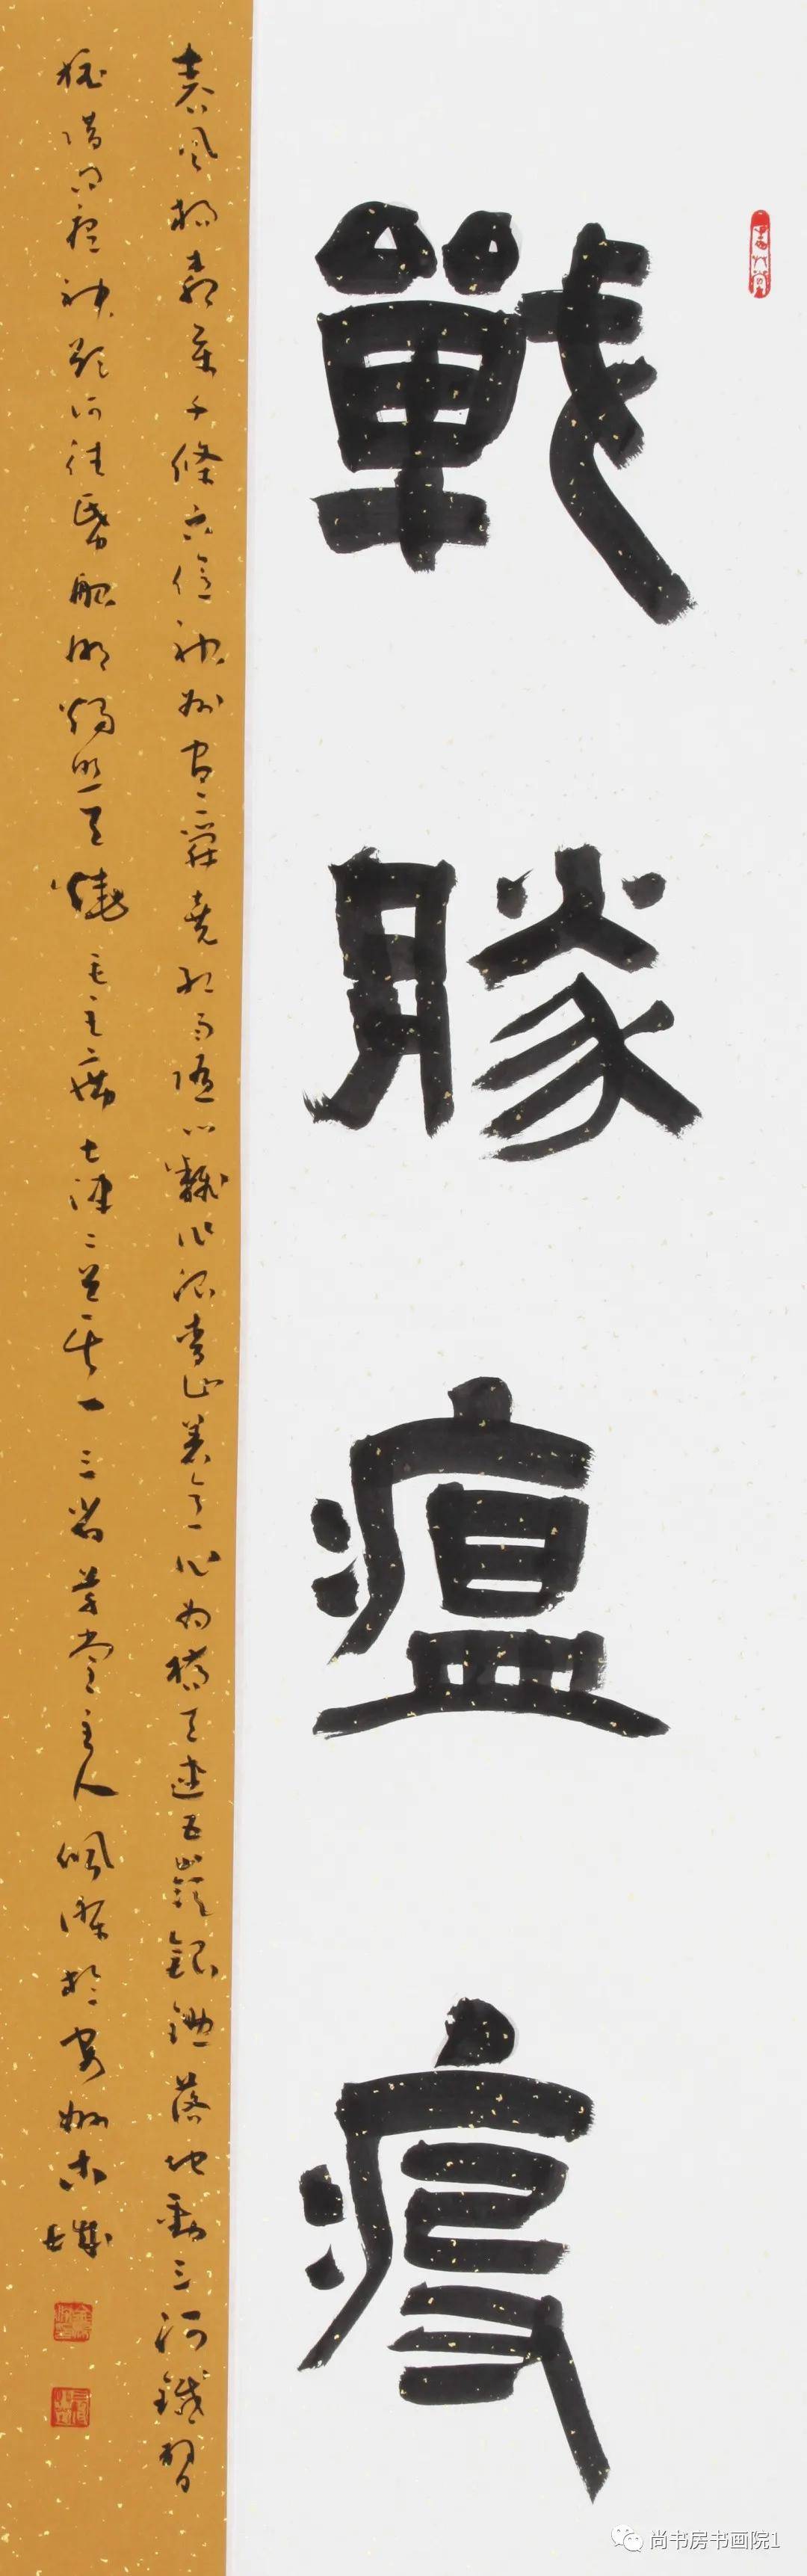 戰勝瘟疫
春風楊柳萬千條六億神州盡舜堯紅雨隨心翻作浪青山着意化為橋天連五嶺銀鋤落地動三河鐵臂
搖借問瘟神欲何往帋船明燭照天燒毛主席七律二首其一堂主人佩於
尚书房书画院1